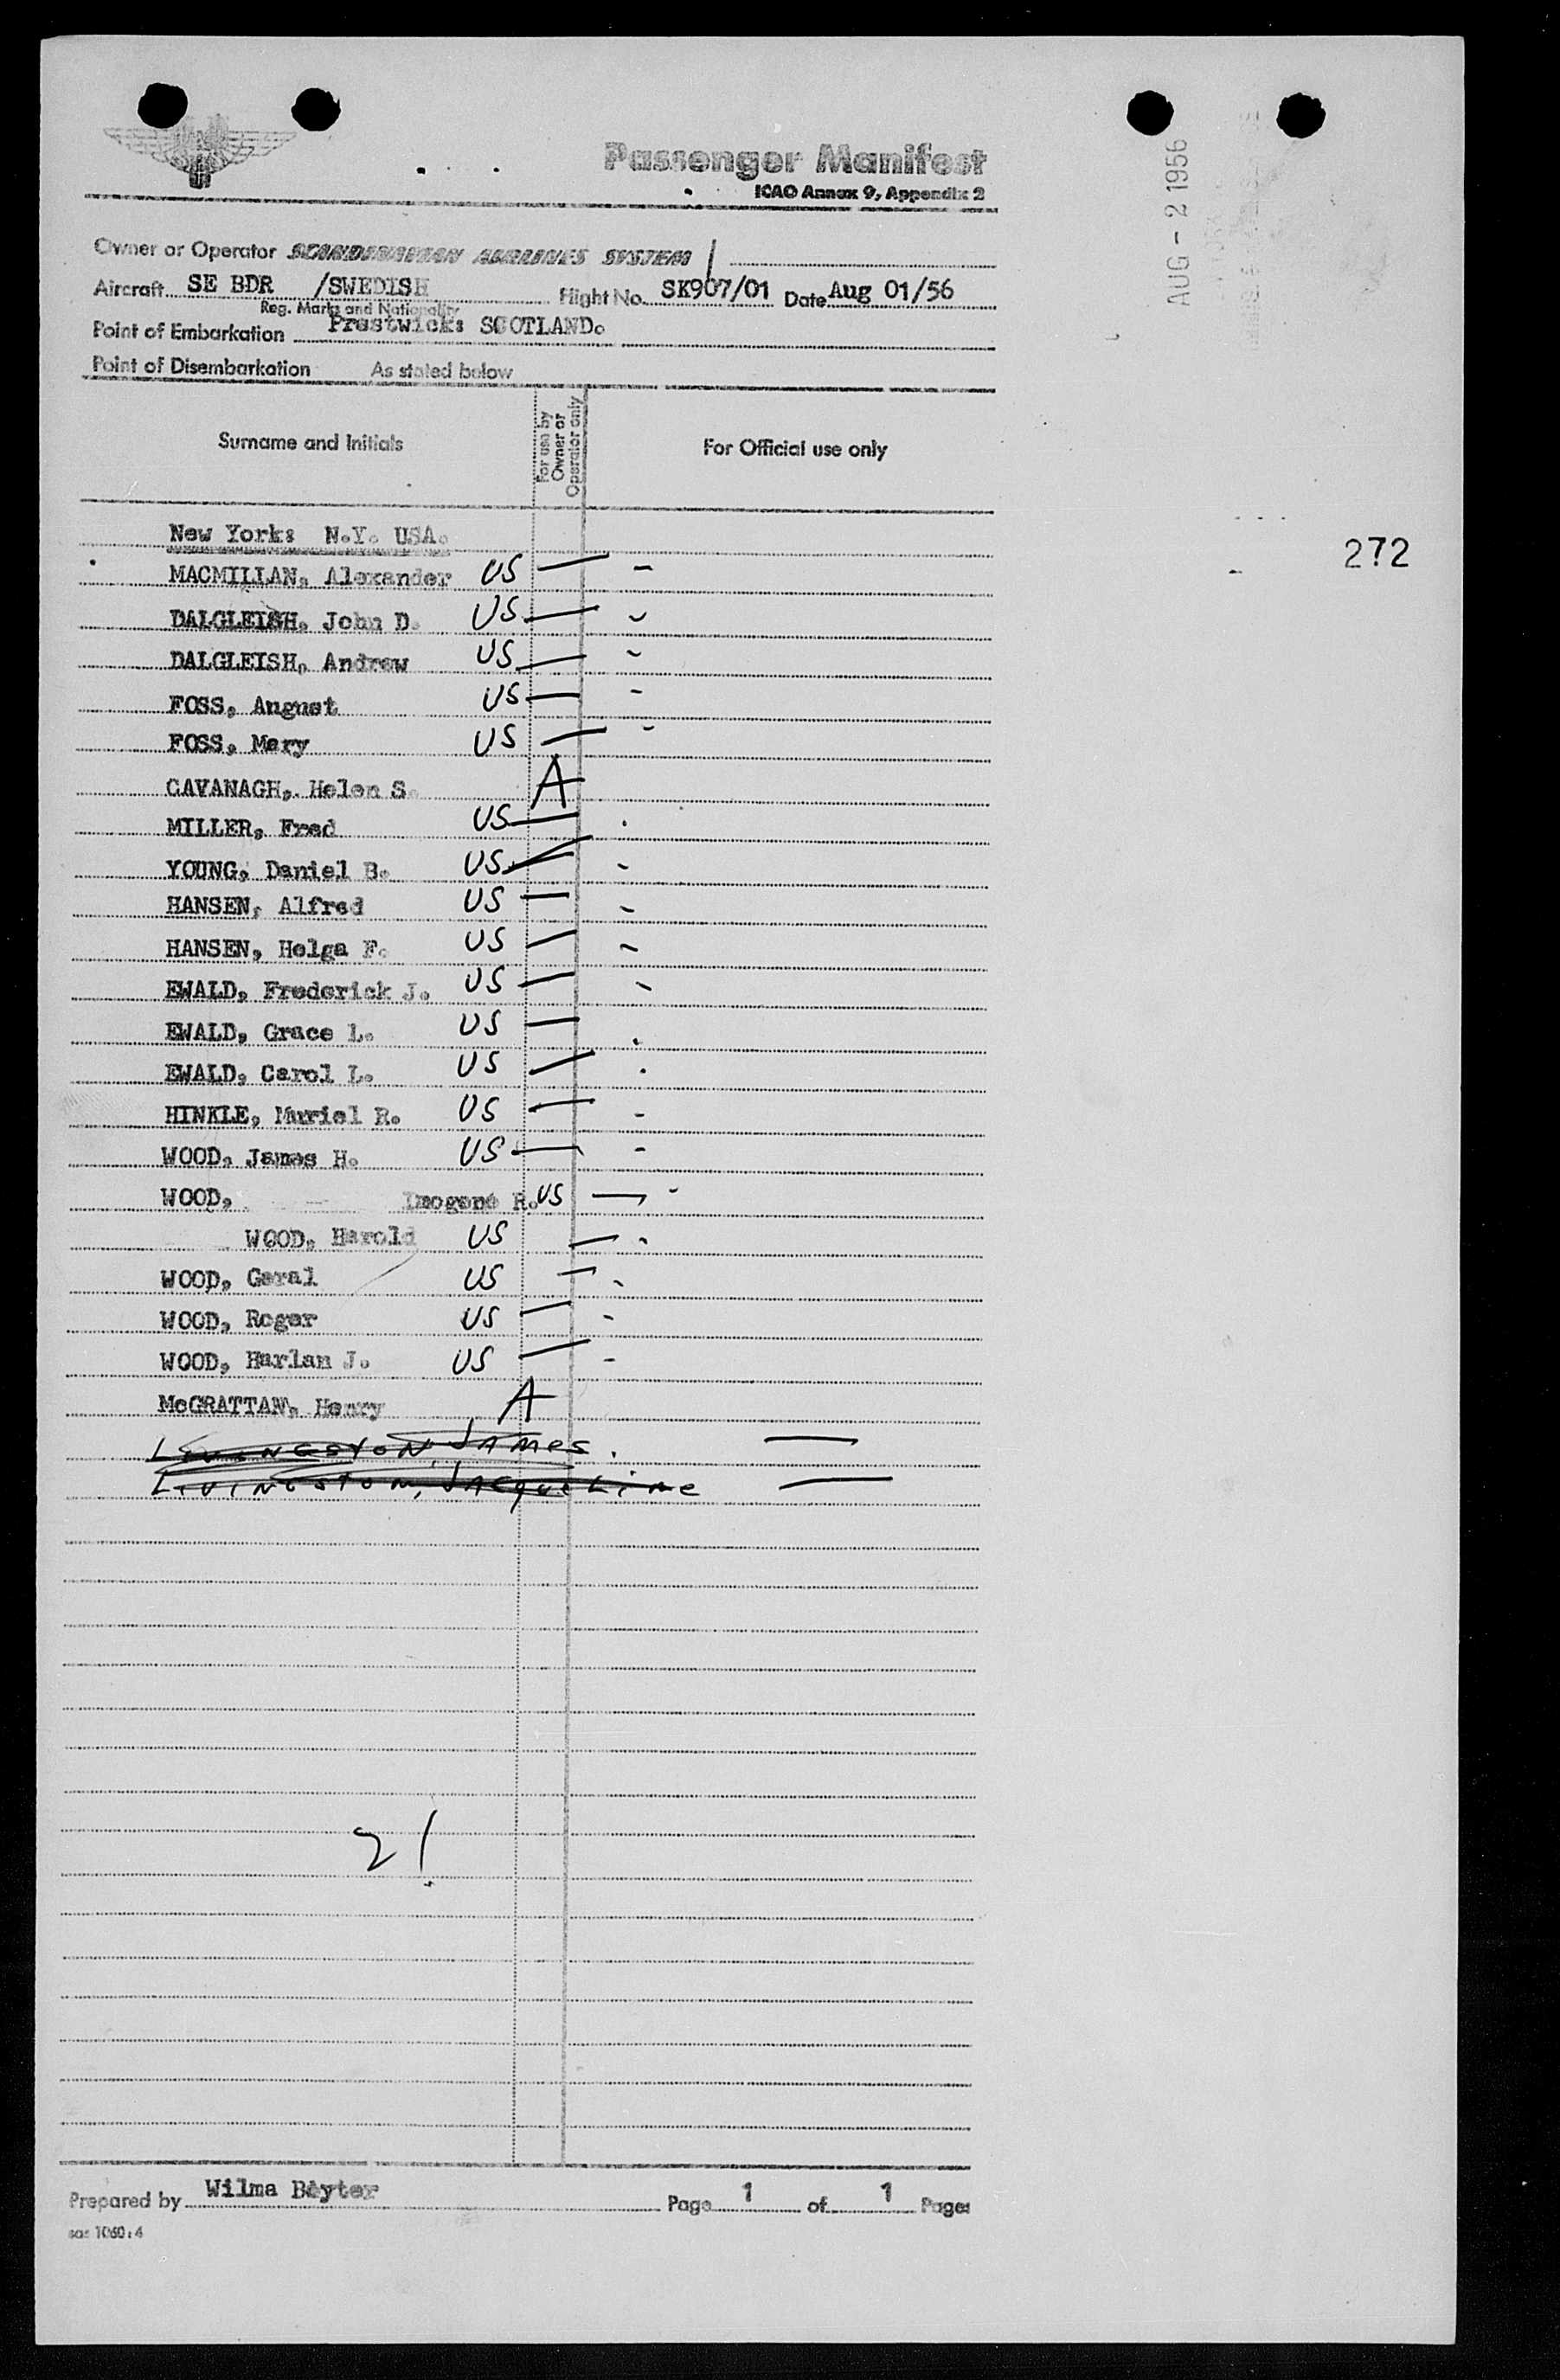 Passenger Manifest
ICAO Annex 9, Appendix 2
AUG - 2 1956
Owner or Operator SCANDINAVIAN AIRLINES SYSTEM
Aircraft SE BDR /SWEDISH Flight No. SK907/01 Date Aug 01/56
Reg. Marks and Nationality
Point of Embarkation Prestwick: SCOTLAND.
Point of Disembarkation As stated below
Surname and Initials For use by Owner or Operator only For Official use only
New York: N.Y. USA.
272
MACMILLAN, Alexander US
DALGLEISH, John D. US
DALGLEISH, Andrew US
FOSS, August US
FOSS, Mary US
CAVANAGH, Helen S. A
MILLER, Fred US
YOUNG, Daniel B. US
HANSEN, Alfred US
HANSEN, Helga F. US
EWALD, Frederick J. US
EWALD, Grace L. US
EWALD, Carol L. US
HINKLE, Muriel R. US
WOOD, James H. US
WOOD, Imogene R. US
WOOD, Harold US
WOOD, Geral US
WOOD, Roger US
WOOD, Harlan J. US
McGRATTAN, Henry A
Livingston, James.
Livingston, Jacqueline
21
Prepared by Wilma Beyter Page 1 of 1 Pages
sas 1060:4